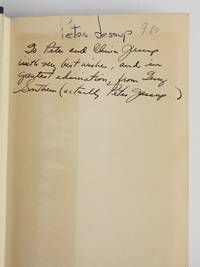 Peter Jessup 9.80
To Peter and Chria Jessup
with very best wishes, and in
greatest admiration, from Terry
Southern (actually Peter Jessup.)